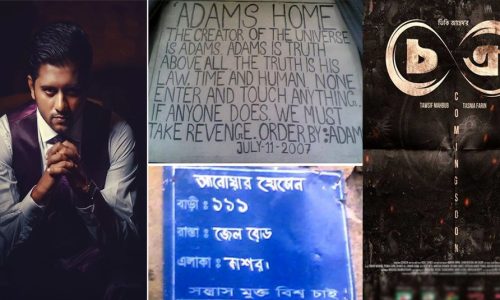 'ADAMS HOME'
THE CREATOR OF THE UNIVERSE
IS ADAMS ADAMS IS TRUTH
ABOVE ALL THE TRUTH IS HIS
LAW. TIME AND HUMAN NONE
ENTER AND TOUCH ANYTHING.
IF ANYONE DOES. WE MUST
TAKE REVENGE. ORDER BY: ADAM
JULY-11-2007
আনোয়ার হোসেন
বাড়ী : ১১১
রাস্তা : জেল রোড
এলাকা :
সন্ত্রাস মুক্ত বিশ্ব চাই
ভিকি জাহেদ'র
চক্র
TAWSIF MAHBUB
TASNIA FARIN
COMING SOON